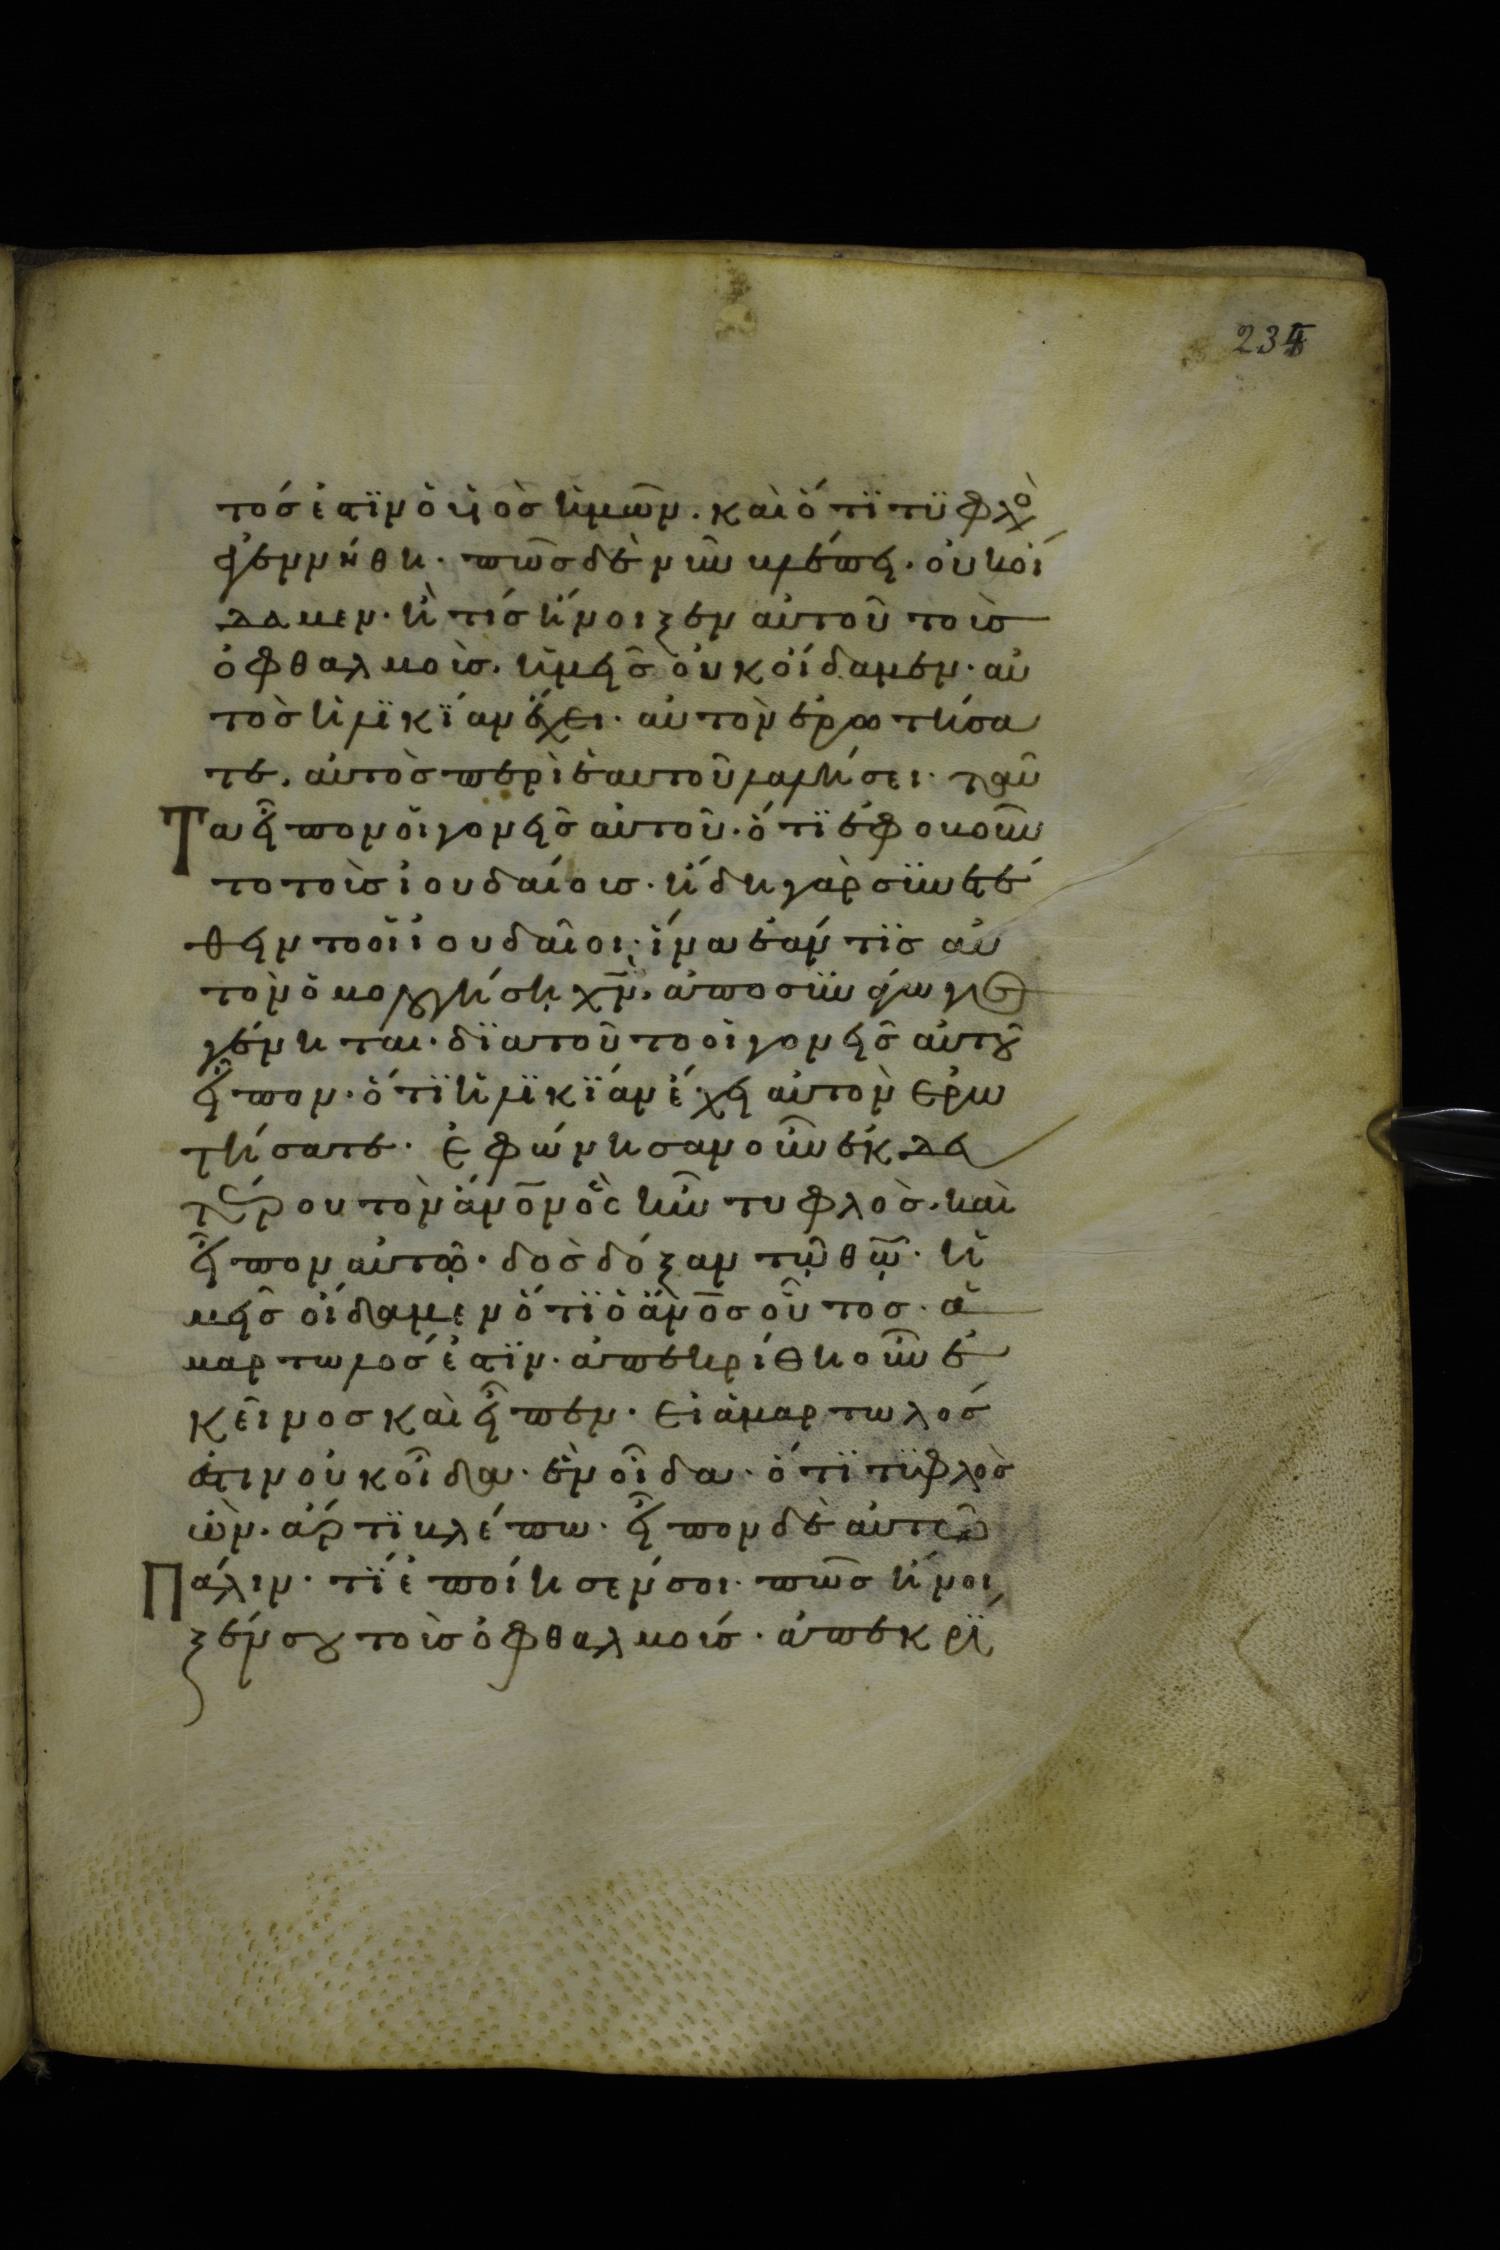 234
τός ἐστϊν ὁ ὑιὸς ἡμῶν. καὶ ὅτϊ τϋφλὸ
ἐγεννήθη. πῶς δὲ νῦν βλέπει. οὐκ οἴ
δαμεν. ἢ τίς ἤνοιξεν αὐτοῦ τοὺς
ὀφθαλμοὺς. ἡμεῖς οὐκ οἴδαμεν. αὐ
τὸς ἡλϊκΐαν ἔχει. αὐτὸν ἐρωτήσα
τε. αὐτὸς περὶ ἑαυτοῦ λαλήσει. ταῦ
Τα εἶπον οἱ γονεῖς αὐτοῦ. ὅτϊ ἐφοβοῦν
το τοὺς ἰουδαίους. ἤδη γὰρ σϋνετέ
θειντο οἱ ἰουδαῖοι. ἵνα ἐάν τϊς αὐ
τὸν ὁμολογήσῃ χν̄. ἀποσϋνάγωγος
γένηται. δϊατοῦτο οἱ γονεῖς αὐτοῦ
εἶπον. ὅτϊ ἡλϊκΐαν ἔχει αὐτὸν ἐρω
τήσατε. ἐφώνησαν οὖν ἐκ δε
τέρου τὸν ἄνο̄ν ὃς ἦν τυφλὸς. καὶ
εἶπον αὐτῷ. δὸς δόξαν τῷ θῶ̄. ἡ
μεῖς οἴδαμεν ὅτϊ ὁ ἄνο̄ς οὗτος. ἁ
μαρτωλός ἐστϊν. ἀπεκρίθη οὖν ἐ
κεῖνος καὶ εἶπεν. εἰ ἁμαρτωλός
ἐστιν οὐκ οἶδα. ἓν οἶδα. ὅτϊ τϋφλὸς
ὢν. ἄρτϊ βλέπω. εἶπον δὲ αὐτῷ
Πάλιν. τΐ ἐποίησέν σοι. πῶς ἤνοι
ξέν σου τοὺς ὀφθαλμούς. ἀπεκρΐ